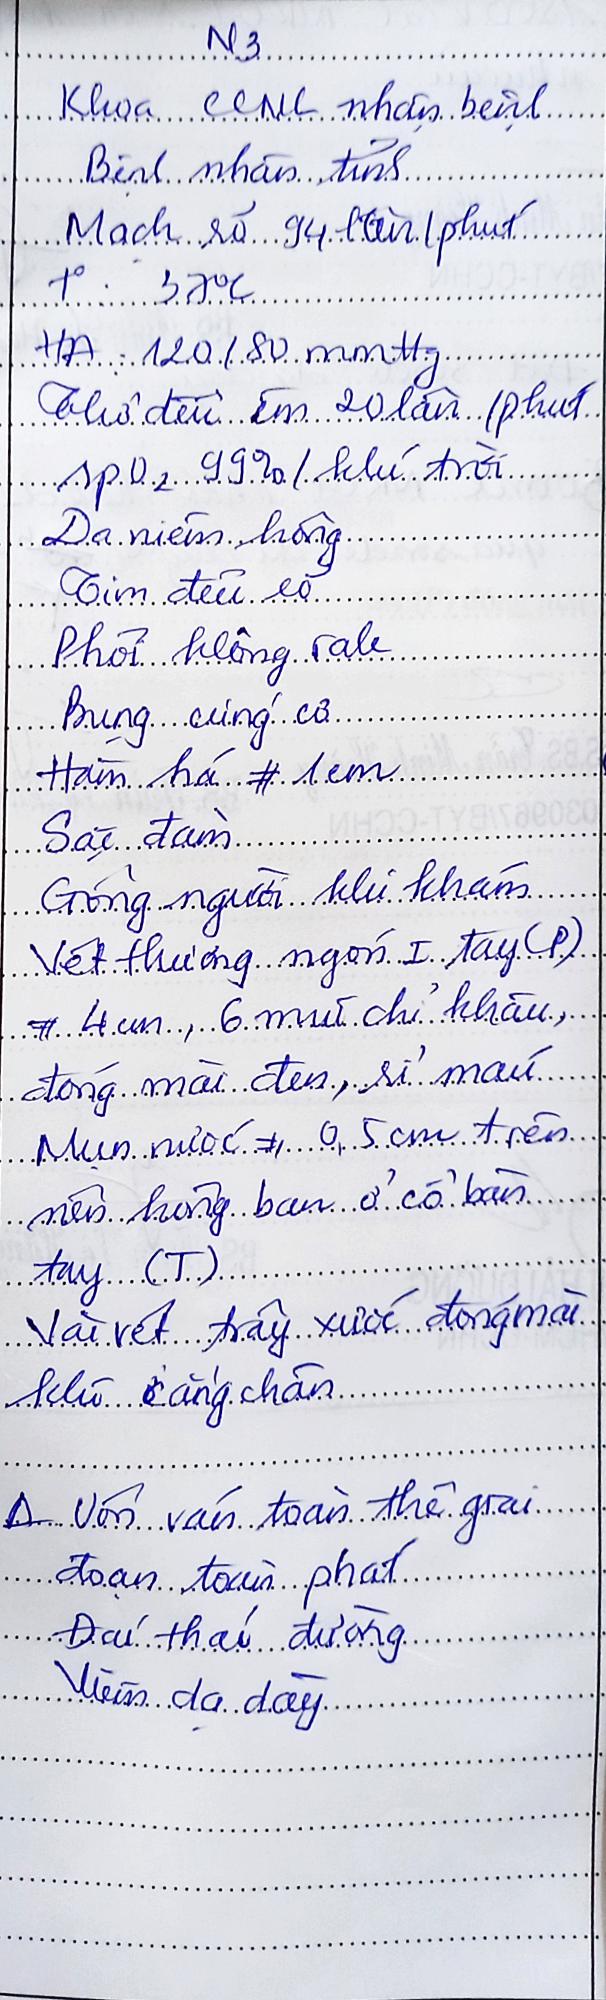 N3
Khoa CCNL nhận bệnh
Bệnh nhân tỉnh
Mạch rõ 94 lần/phút
T° : 37°C
HA : 120/80 mmHg
Thở đều êm 20 lần/phút
SpO2 99%/khí trời
Da niêm hồng
Tim đều rõ
Phổi không rale
Bụng cứng cơ
Hàm há # 1cm
Sặc đàm
Gồng người khi khám
Vết thương ngón I tay (P)
# 4cm, 6 mũi chỉ khâu,
đóng mài đen, rỉ máu
Mụn nước # 0,5cm trên
nền hồng ban ở cổ bàn
tay (T)
Vài vết trầy xước đóng mài
khô cẳng chân
Δ Uốn ván toàn thể giai
đoạn toàn phát
Đái tháo đường
Viêm dạ dày